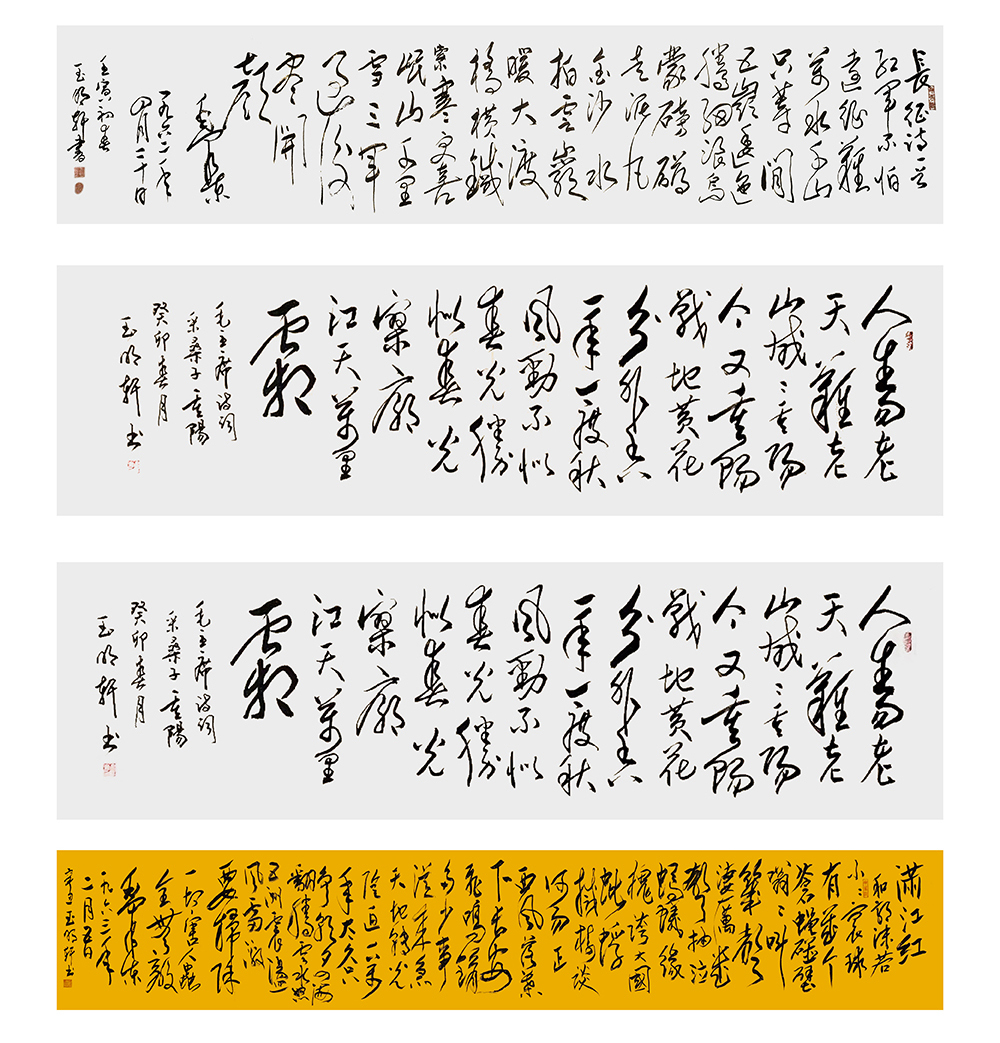 長征诗一首
红軍不怕
遠征難
萬水千山
只等閒
五嶺逶迤
騰細浪烏
蒙磅礴
走泥丸
金沙水
拍雲巖
暖大渡
橋橫鐵
索寒更喜
岷山千里
雪三軍
过後
盡開
顏
毛澤東
一九六二年
四月二十日
壬寅初春
玉明軒書
人生易老
天難老
歲歲重陽
今又重陽
戰地黄花
分外香
一年一度秋
風勁不似
春光勝
似春光
寥廓
江天萬里
霜
毛主席诗词
采桑子重陽
癸卯春月
玉明軒书
人生易老
天難老
歲歲重陽
今又重陽
戰地黄花
分外香
一年一度秋
風勁不似
春光勝
似春光
寥廓
江天萬里
霜
毛主席诗词
采桑子重陽
癸卯春月
玉明軒书
满江红
和郭沫若
小小寰球
有幾个
蒼蠅碰壁
嗡嗡叫
幾聲
凄厲幾
聲抽泣
螞蟻緣
槐誇大國
蚍蜉
撼樹談
何易正
西風落葉
下长安
飛鳴鏑
多少事
從来急
天地轉光
陰迫一萬
年太久只
争朝夕四海
翻騰雲水怒
五洲震盪
風雷激
要掃除
一切害人蟲
全無敵
毛澤東
一九六三年
二月五日
玉明軒书